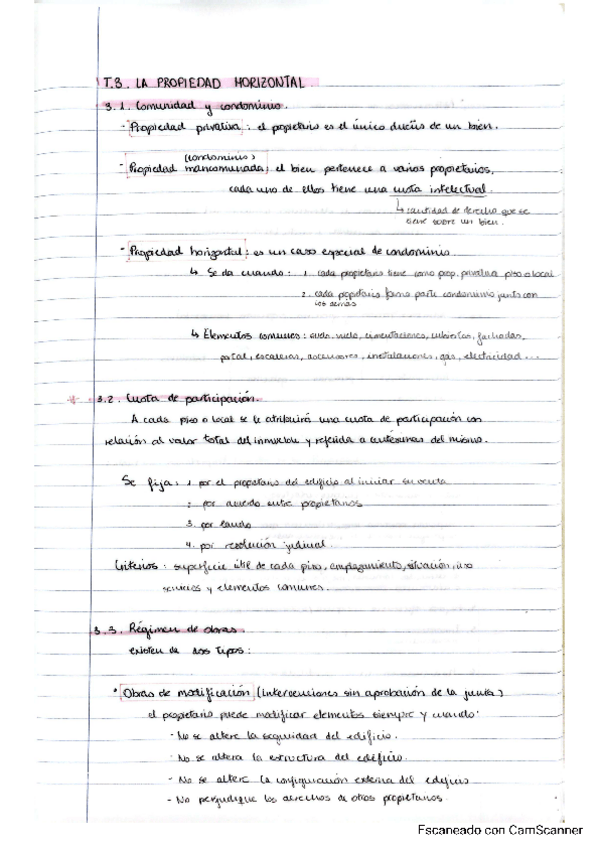 T.3. LA PROPIEDAD HORIZONTAL
3.1. Comunidad y condominio.
- Propiedad privativa: el propietario es el único dueño de un bien.
(condominio)
- Propiedad mancomunada: el bien pertenece a varios propietarios,
cada uno de ellos tiene una cuota intelectual.
↳ cantidad de derecho que se
tiene sobre un bien.
- Propiedad horizontal: es un caso especial de condominio
↳ Se da cuando: 1. cada propietario tiene como prop. privativa piso o local
2. cada propietario forma parte condominio junto con
los demás
↳ Elementos comunes: suelo, vuelo, cimentaciones, cubiertas, fachadas,
portal, escaleras, ascensores, instalaciones, gas, electricidad...
* 3.2. Cuota de participación.
A cada piso o local se le atribuirá una cuota de participación con
relación al valor total del inmueble y referida a centésimas del mismo.
Se fija: 1 por el propietario del edificio al iniciar su venta
2 por acuerdo entre propietarios
3. por laudo
4. por resolución judicial.
Criterios: superficie útil de cada piso, emplazamiento, situación, uso
servicios y elementos comunes.
3.3. Régimen de obras.
existen de dos tipos:
• Obras de modificación (intervenciones sin aprobación de la junta)
el propietario puede modificar elementos siempre y cuando:
- No se altere la seguridad del edificio.
- No se altera la estructura del edificio.
- No se altere la configuración externa del edificio
- No perjudique los derechos de otros propietarios.
Escaneado con CamScanner